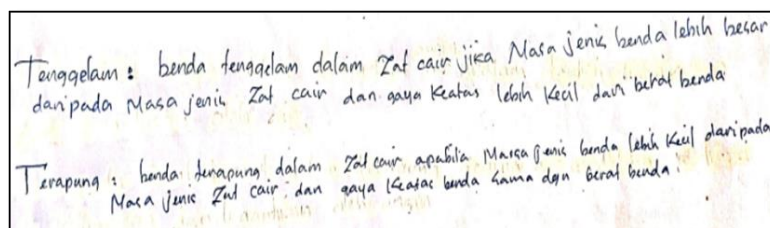 Tenggelam : benda tenggelam dalam Zat cair jika Masa jenis benda lebih besar
daripada Masa jenis Zat cair dan gaya Keatas lebih Kecil dari berat benda
Terapung : benda terapung dalam Zat cair apabila Massa jenis benda lebih Kecil daripada
Masa jenis Zat cair dan gaya Keatas benda sama dgn berat benda.